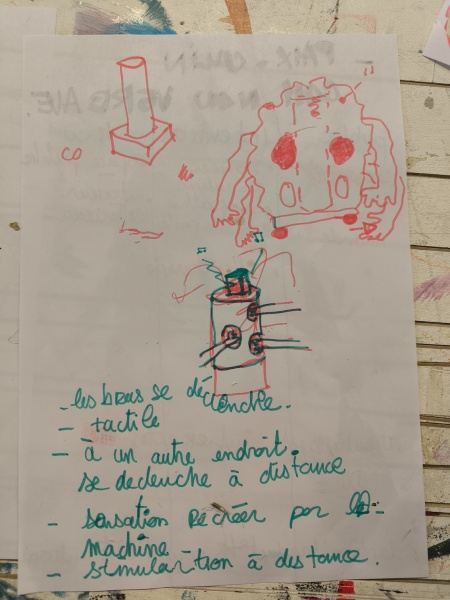 CO
- les bras se déclenche.
- tactile
- à un autre endroit.
se declenche à distance
- sensation recréer par la
machine
- stimularition à distance.